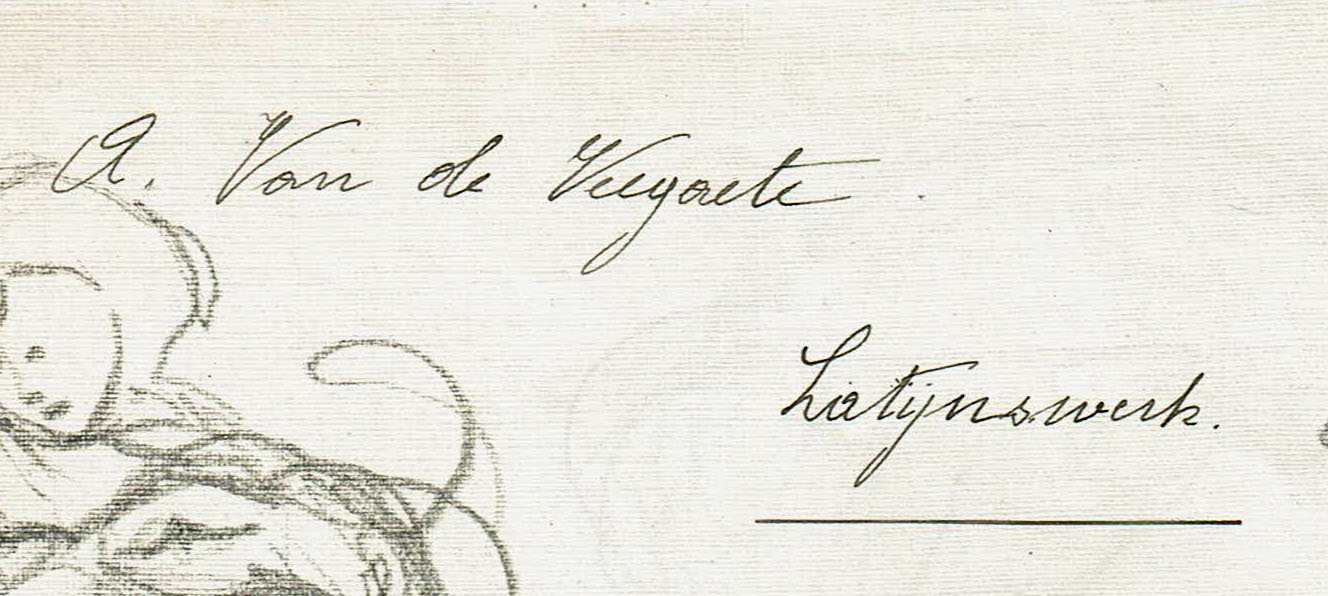 A. Van de Veegaete.
Latijnswerk.